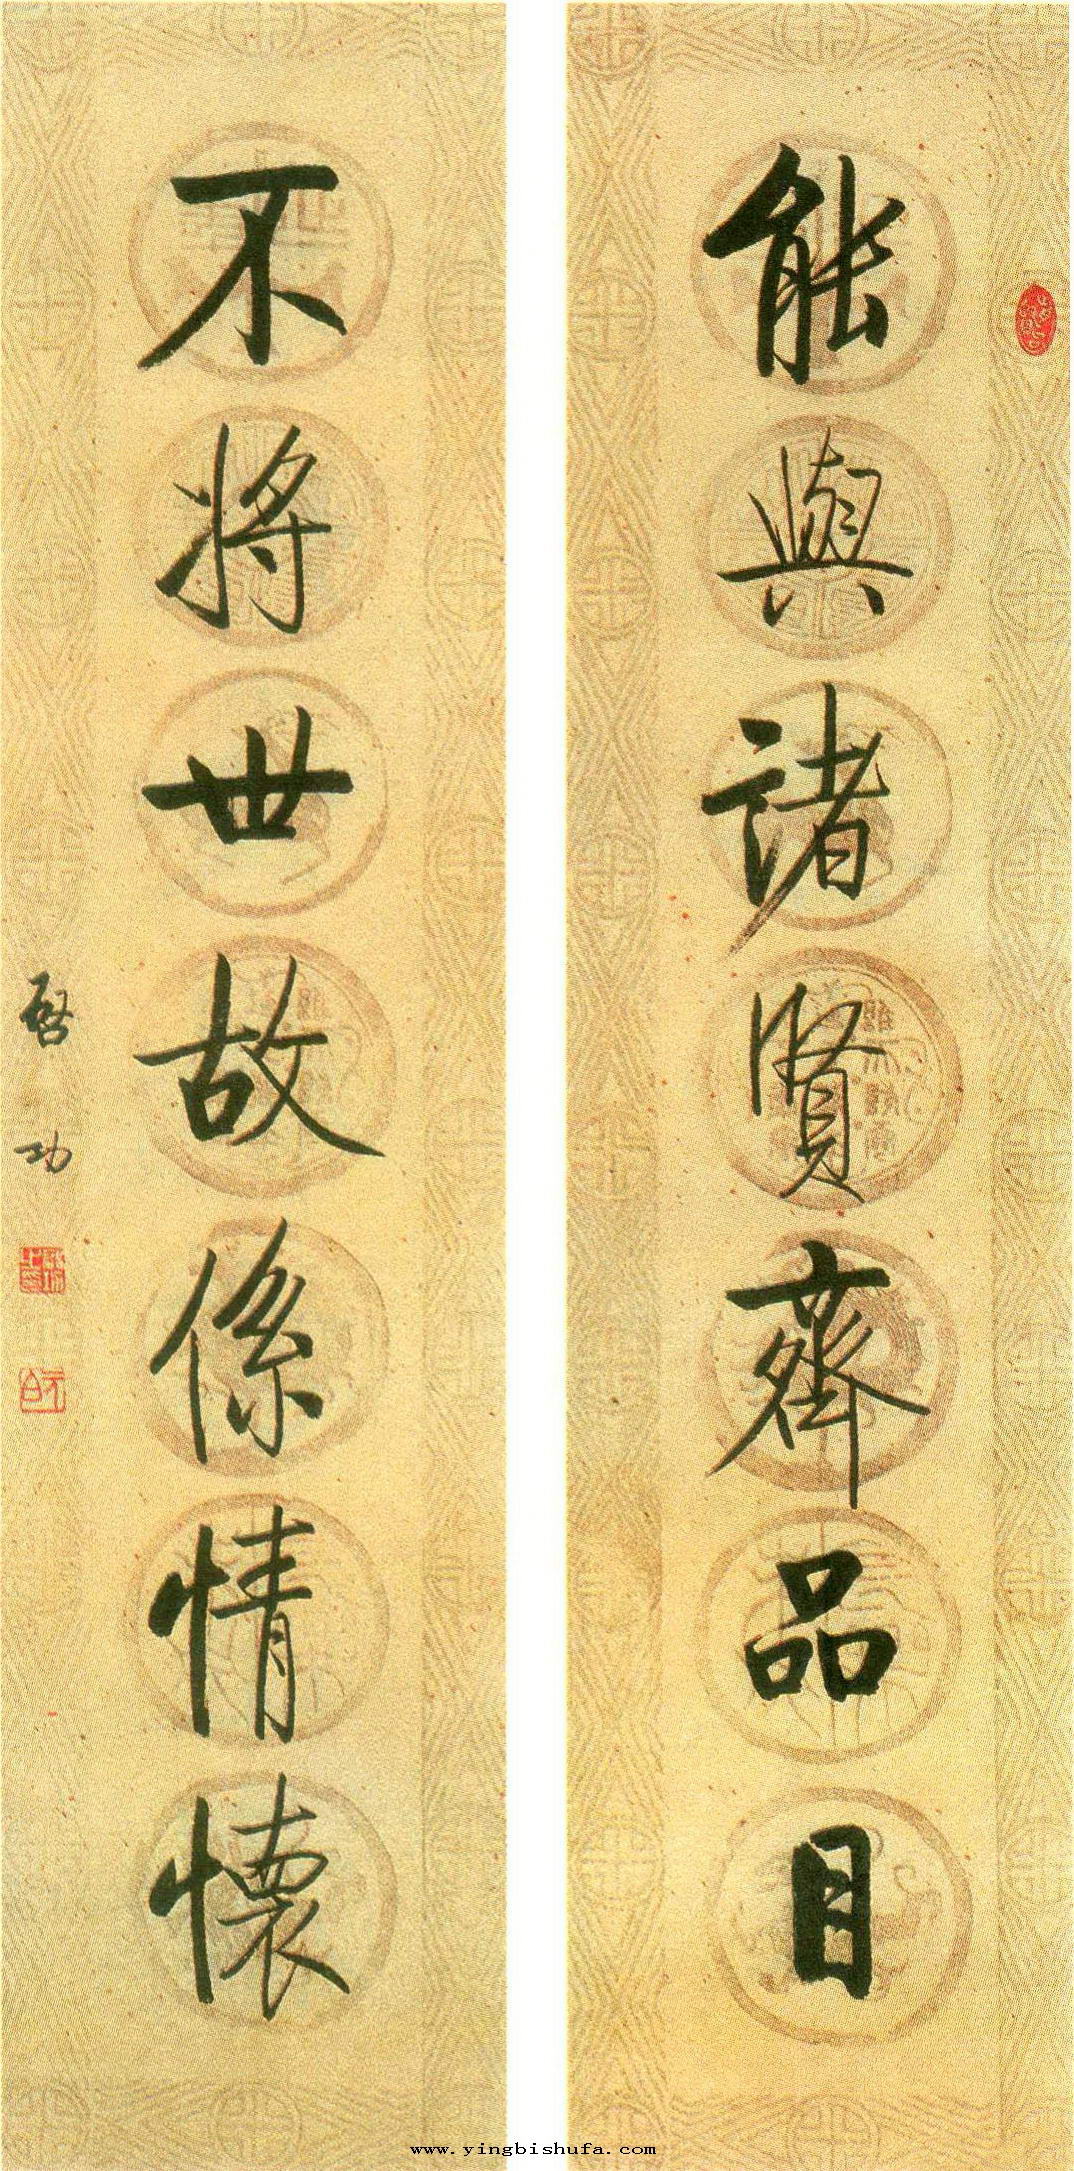 能與諸賢齊品目
不將世故係情懷
啓功
www.yingbishufa.com